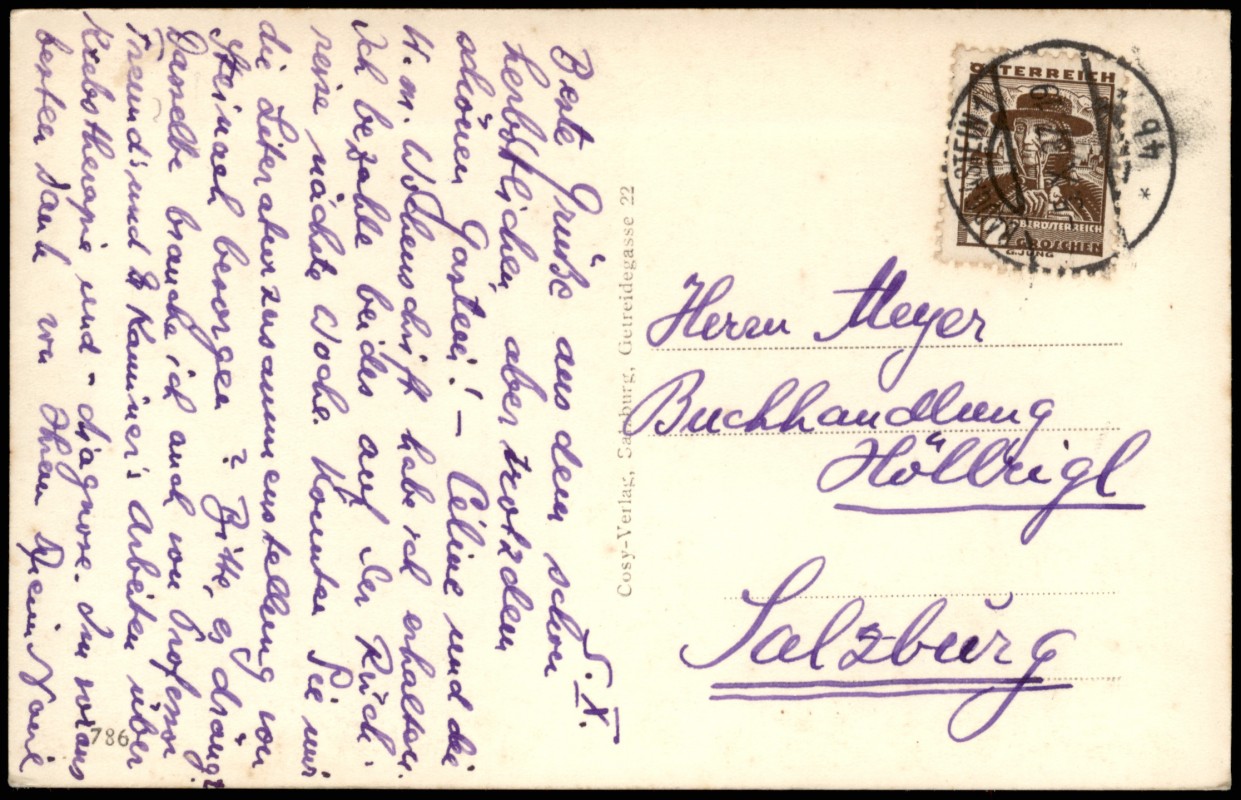 5. X.
Beste Grüße aus dem schon
herbstlichen aber trotzdem
schönen Gastein! – Céline und die
W. m. Wochenschrift habe ich erhalten.
Ich bezahle beides auf der Rück-
reise nächste Woche. Könnten Sie mir
die Literaturzusammenstellung von
Steinach besorgen? Bitte, es drängt
Dasselbe brauche ich auch von Professor
Freund's und Kaminer's Arbeiten über
Krebstherapie und -diagnose. Im voraus
besten Dank von Ihrem
786
Cosy-Verlag, Salzburg, Getreidegasse 22
ÖSTERREICH
OBERÖSTERREICH
GROSCHEN
G. JUNG
Herrn Meyer
Buchhandlung
Höllrigl
Salzburg